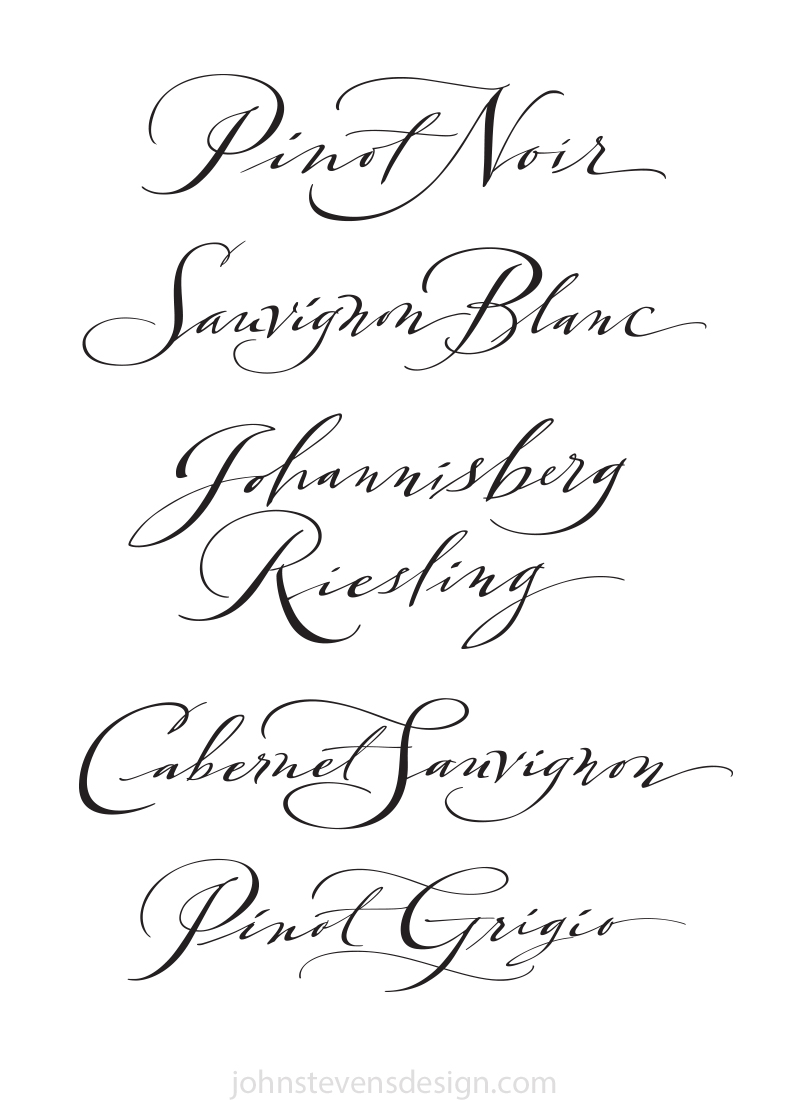 Pinot Noir
Sauvignon Blanc
Johannisberg
Riesling
Cabernet Sauvignon
Pinot Grigio
johnstevensdesign.com